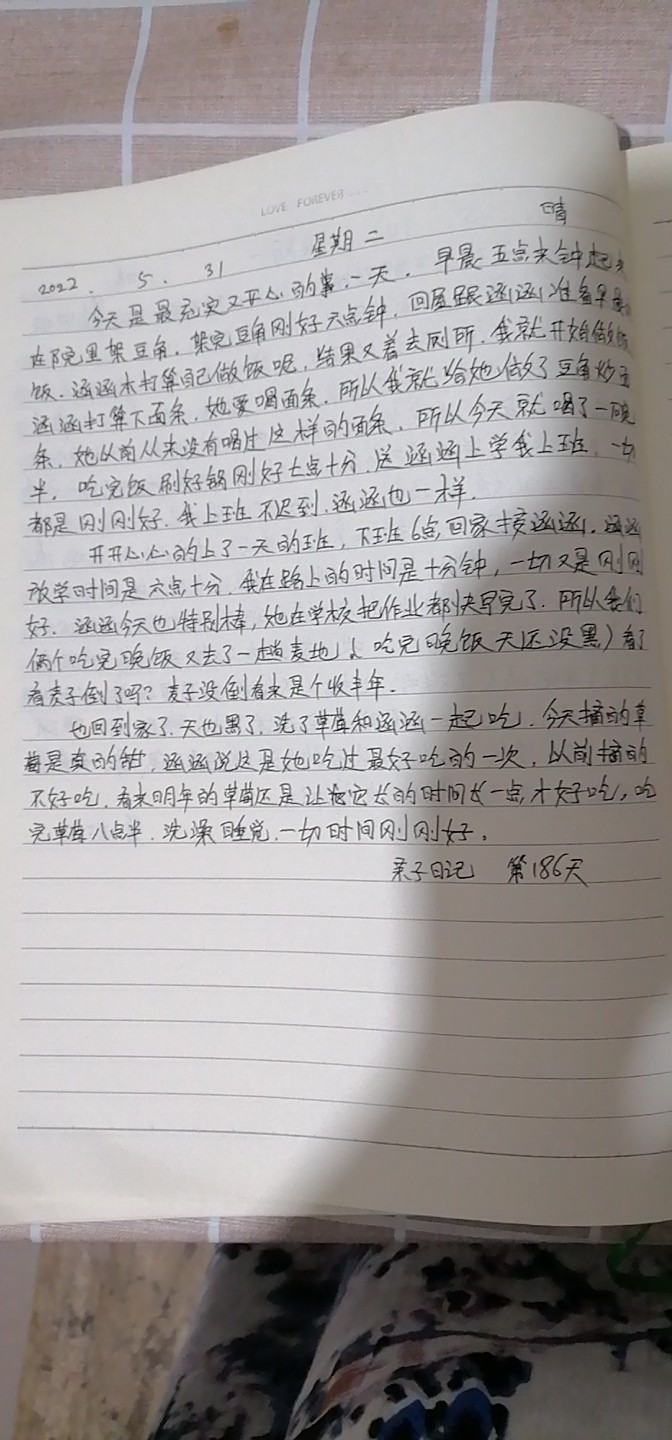 LOVE FOREVER....
晴
2022. 5. 31 星期二
今天是最充实又开心的事.一天. 早晨五点来钟起来
在院里架豆角.架完豆角刚好六点钟.回屋跟涵涵准备早
饭.涵涵本打算自己做饭呢,结果又着去厕所.我就开始做
涵涵打算下面条.她爱喝面条.所以我就给她做了豆角炒面
条.她以前从来没有喝过这样的面条.所以今天就喝了一碗
半.吃完饭刷好锅刚好七点十分.送涵涵上学我上班.一切
都是刚刚好.我上班不迟到.涵涵也一样.
开开心心的上了一天的班,下班6点回家接涵涵.涵涵
放学时间是六点十分.我在路上的时间是十分钟,一切又是刚刚
好.涵涵今天也特别棒,她在学校把作业都快写完了.所以我们
俩个吃完晚饭又去了一趟麦地(吃完晚饭天还没黑)看了
看麦子倒了吗?麦子没倒看来是个收丰年.
也回到家了.天也黑了.洗了草莓和涵涵一起吃.今天摘的草
莓是真的甜,涵涵说这是她吃过最好吃的一次.以前摘的
不好吃.看来明年的草莓还是让它长的时间长一点才好吃,吃
完草莓八点半.洗澡睡觉.一切时间刚刚好.
亲子日记 第186天